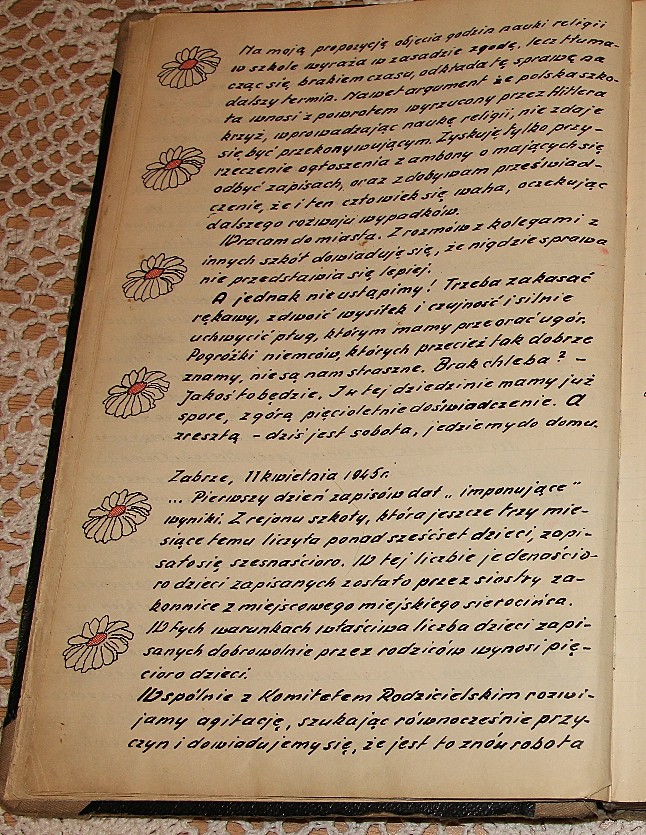 Na moją propozycję objęcia godzin nauki religii
w szkole wyraża w zasadzie zgodę, lecz tłuma-
cząc się, brakiem czasu, odkłada tę sprawę na
dalszy termin. Nawet argument że polska szko-
ta wnosi z powrotem wyrzucony przez Hitlera
krzyż, wprowadzając naukę religii, nie zdaje
się być przekonywującym. Zyskuję tylko przy-
rzeczenie ogłoszenia z ambony o mających się
odbyć zapisach, oraz zdobywam przeświad-
czenie, że i ten człowiek się waha, oczekując
dalszego rozwoju wypadków.
Wracam do miasta. Z rozmów z kolegami z
innych szkół dowiaduję się, że nigdzie sprawa
nie przedstawia się lepiej.
A jednak nie ustąpimy! Trzeba zakasać
rękawy, zdwoić wysiłek i czujność i silnie
uchwycić pług, którym mamy przeorać ugór.
Pogróżki niemców, których przecież tak dobrze
znamy, nie są nam straszne. Brak chleba? -
Jakoś to będzie. I w tej dziedzinie mamy już
spore, z górą pięcioletnie doświadczenie. A
zresztą - dziś jest sobota, jedziemy do domu.
Zabrze, 11 kwietnia 1945r.
... Pierwszy dzień zapisów dał „imponujące"
wyniki. Z rejonu szkoły, która jeszcze trzy mie-
siące temu liczyła ponad sześćset dzieci, zapi-
sało się szesnaścioro. W tej liczbie jedenaścio-
ro dzieci zapisanych zostało przez siostry za-
konnice z miejscowego miejskiego sierocińca.
W tych warunkach właściwa liczba dzieci zapi-
sanych dobrowolnie przez rodziców wynosi pię-
cioro dzieci.
Wspólnie z Komitetem Rodzicielskim rozwi-
jamy agitację, szukając równocześnie przy-
czyn i dowiadujemy się, że jest to znów robota